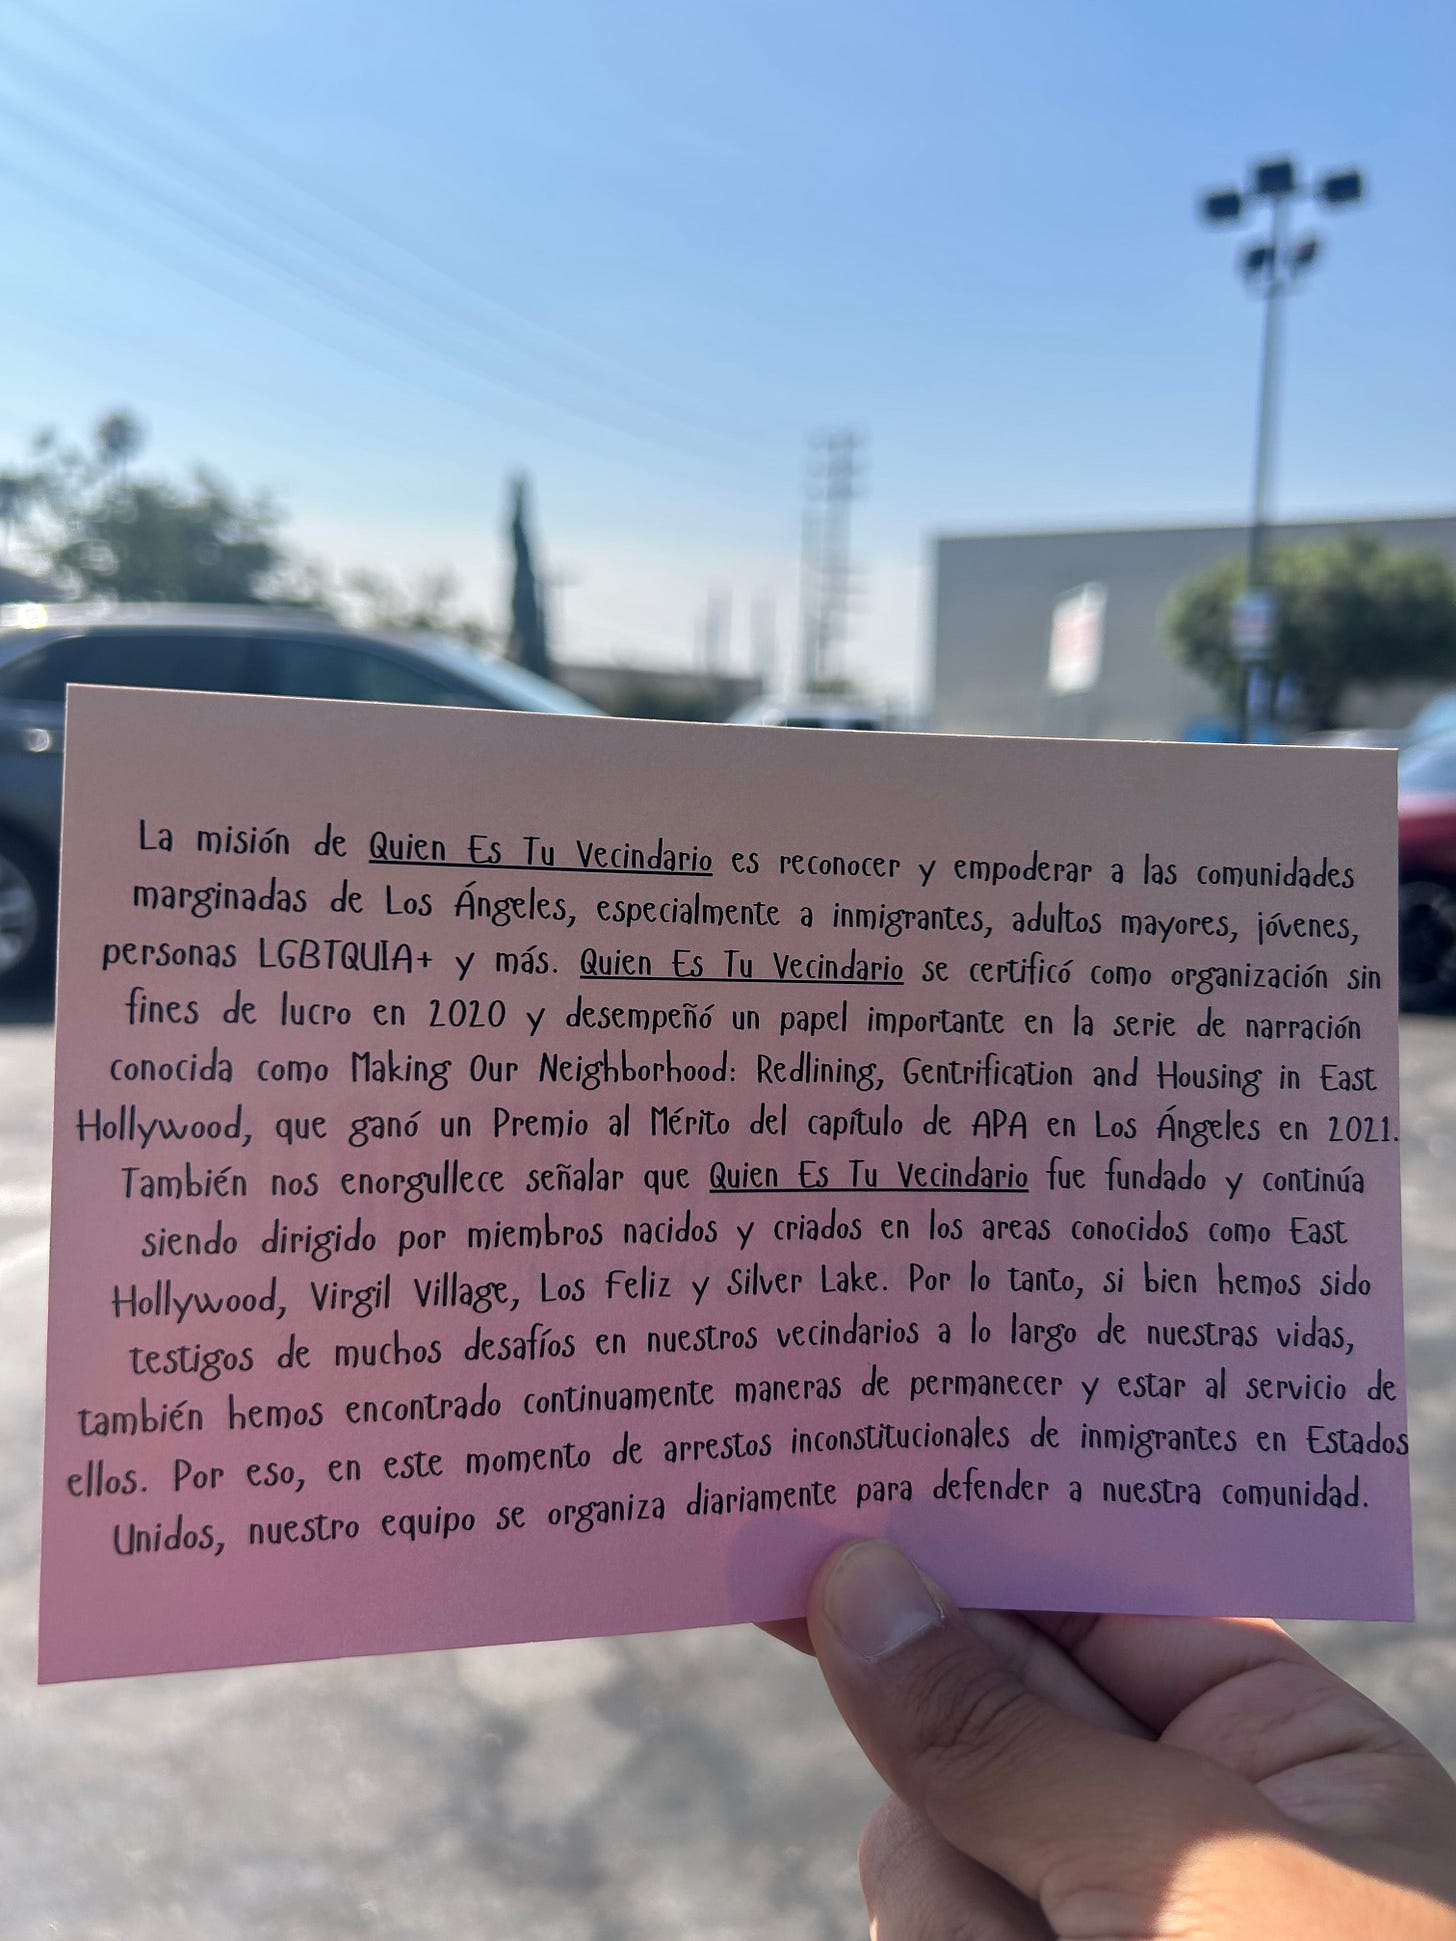 La misión de Quien Es Tu Vecindario es reconocer y empoderar a las comunidades
marginadas de Los Ángeles, especialmente a inmigrantes, adultos mayores, jóvenes,
personas LGBTQUIA+ y más. Quien Es Tu Vecindario se certificó como organización sin
fines de lucro en 2020 y desempeñó un papel importante en la serie de narración
conocida como Making Our Neighborhood: Redlining, Gentrification and Housing in East
Hollywood, que ganó un Premio al Mérito del capítulo de APA en Los Ángeles en 2021.
También nos enorgullece señalar que Quien Es Tu Vecindario fue fundado y continúa
siendo dirigido por miembros nacidos y criados en los areas conocidos como East
Hollywood, Virgil Village, Los Feliz y Silver Lake. Por lo tanto, si bien hemos sido
testigos de muchos desafíos en nuestros vecindarios a lo largo de nuestras vidas,
también hemos encontrado continuamente maneras de permanecer y estar al servicio de
ellos. Por eso, en este momento de arrestos inconstitucionales de inmigrantes en Estados
Unidos, nuestro equipo se organiza diariamente para defender a nuestra comunidad.